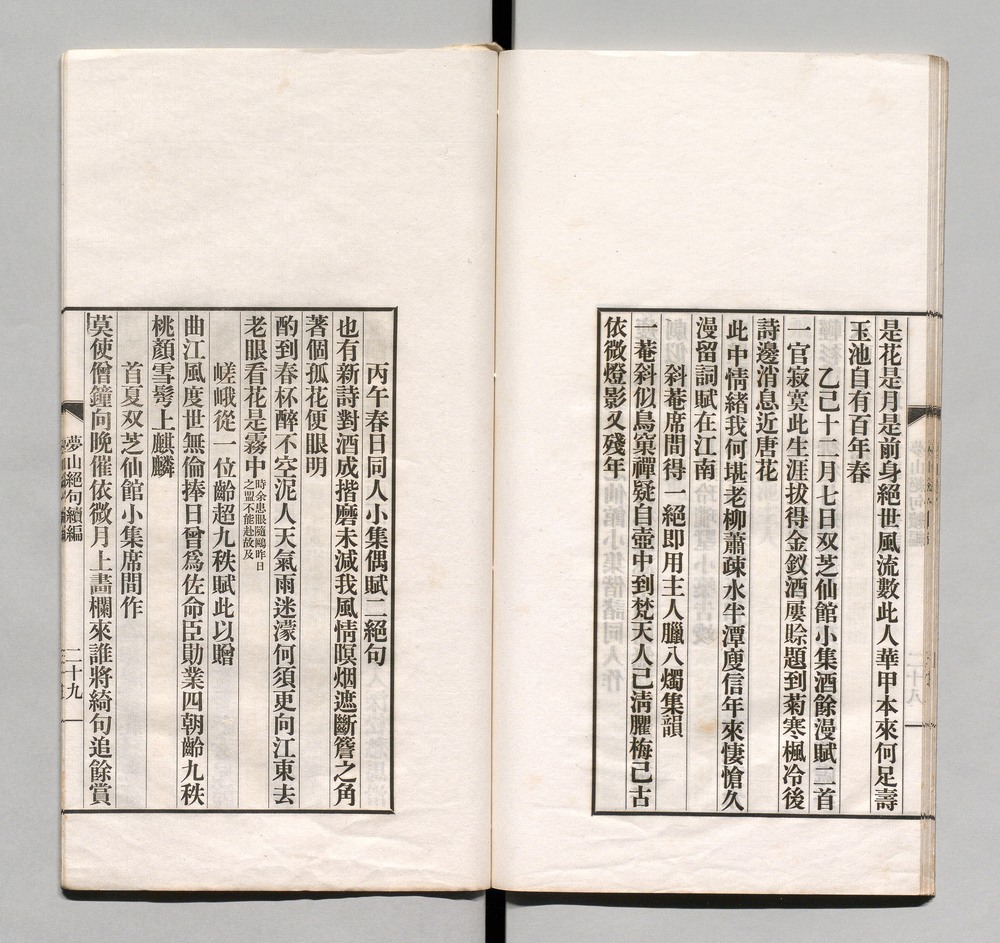 是花是月是前身絕世風流數此人華甲本來何足壽
玉池自有百年春
乙己十二月七日双芝仙館小集酒餘漫賦二首
一官寂寞此生涯拔得金釵酒屢賒題到菊寒楓冷後
詩邊消息近唐花
此中情緒我何堪老柳蕭疎水半潭庾信年來悽愴久
漫留詞賦在江南
斜菴席間得一絕即用主人臘八燭集韻
一菴斜似鳥窠禪疑自壺中到梵天人己淸臞梅己古
依微燈影又殘年
丙午春日同人小集偶賦二絕句
也有新詩對酒成揩磨未減我風情暝烟遮斷簷之角
著個孤花便眼明
酌到春杯醉不空泥人天氣雨迷濛何須更向江東去
老眼看花是霧中時余患眼隨鷗昨日之盟不能赴故及
嵯峨從一位齡超九秩賦此以贈
曲江風度世無倫捧日曾爲佐命臣勛業四朝齡九秩
桃顏雪鬢上麒麟
首夏双芝仙館小集席間作
莫使僧鐘向晚催依微月上畫欄來誰將綺句追餘賞
夢山絕句續編
二十九